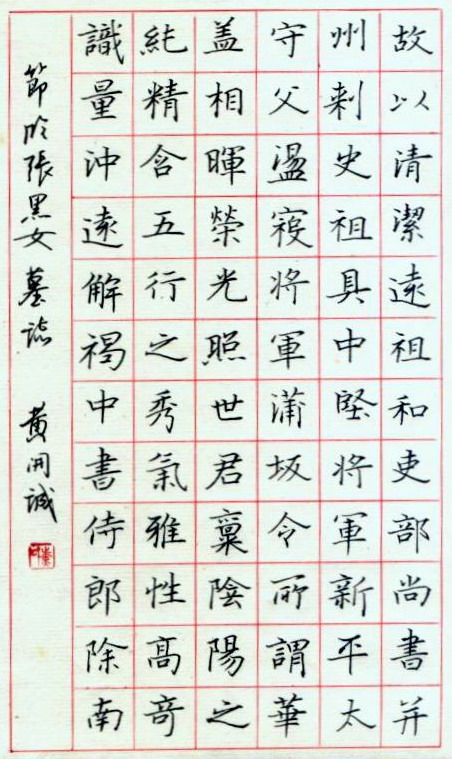 故以清潔遠祖和吏部尚書并
州刺史祖具中堅將軍新平太
守父盪寇將軍蒲坂令所謂華
盖相暉榮光照世君稟陰陽之
純精含五行之秀氣雅性高奇
識量沖遠解褐中書侍郎除南
節臨張黑女墓誌 黄開誠